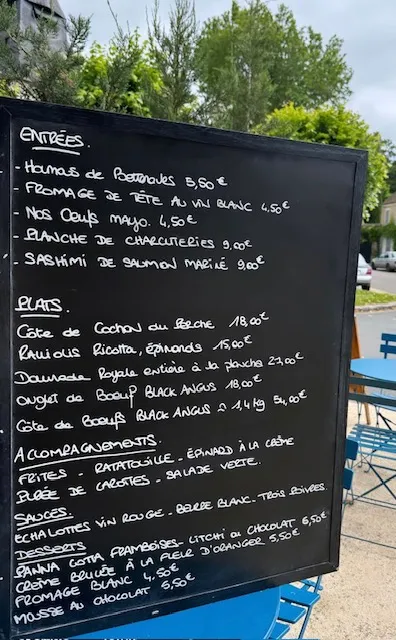 ENTRÉES.
- Houmous de Betteraves 5,50€
- FROMAGE DE TÊTE AU VIN BLANC 4,50€
- Nos Oeufs mayo. 4,50€
- PLANCHE DE CHARCUTERIES 9,00€
- SASHIMI DE SAUMON MARINÉ 9,00€
PLATS.
Côte de Cochon du Perche 18,00€
Raviolis Ricotta, épinards 15,00€
Daurade Royale entière à la plancha 27,00€
Onglet de Boeuf BLACK ANGUS 18,00€
Côte de Boeufs BLACK ANGUS 1,4 kg 54,00€
ACCOMPAGNEMENTS.
FRITES - RATATOUILLE - ÉPINARD À LA CRÈME
PURÉE DE CAROTTES - SALADE VERTE.
SAUCES.
ECHALOTTES VIN ROUGE - BEURRE BLANC - TROIS POIVRES.
DESSERTS
PANNA COTTA FRAMBOISES - LITCHI ou CHOCOLAT 6,50€
CRÈME BRULÉE À LA FLEUR D'ORANGER 5,50€
FROMAGE BLANC 4,50€
MOUSSE AU CHOCOLAT 6,50€